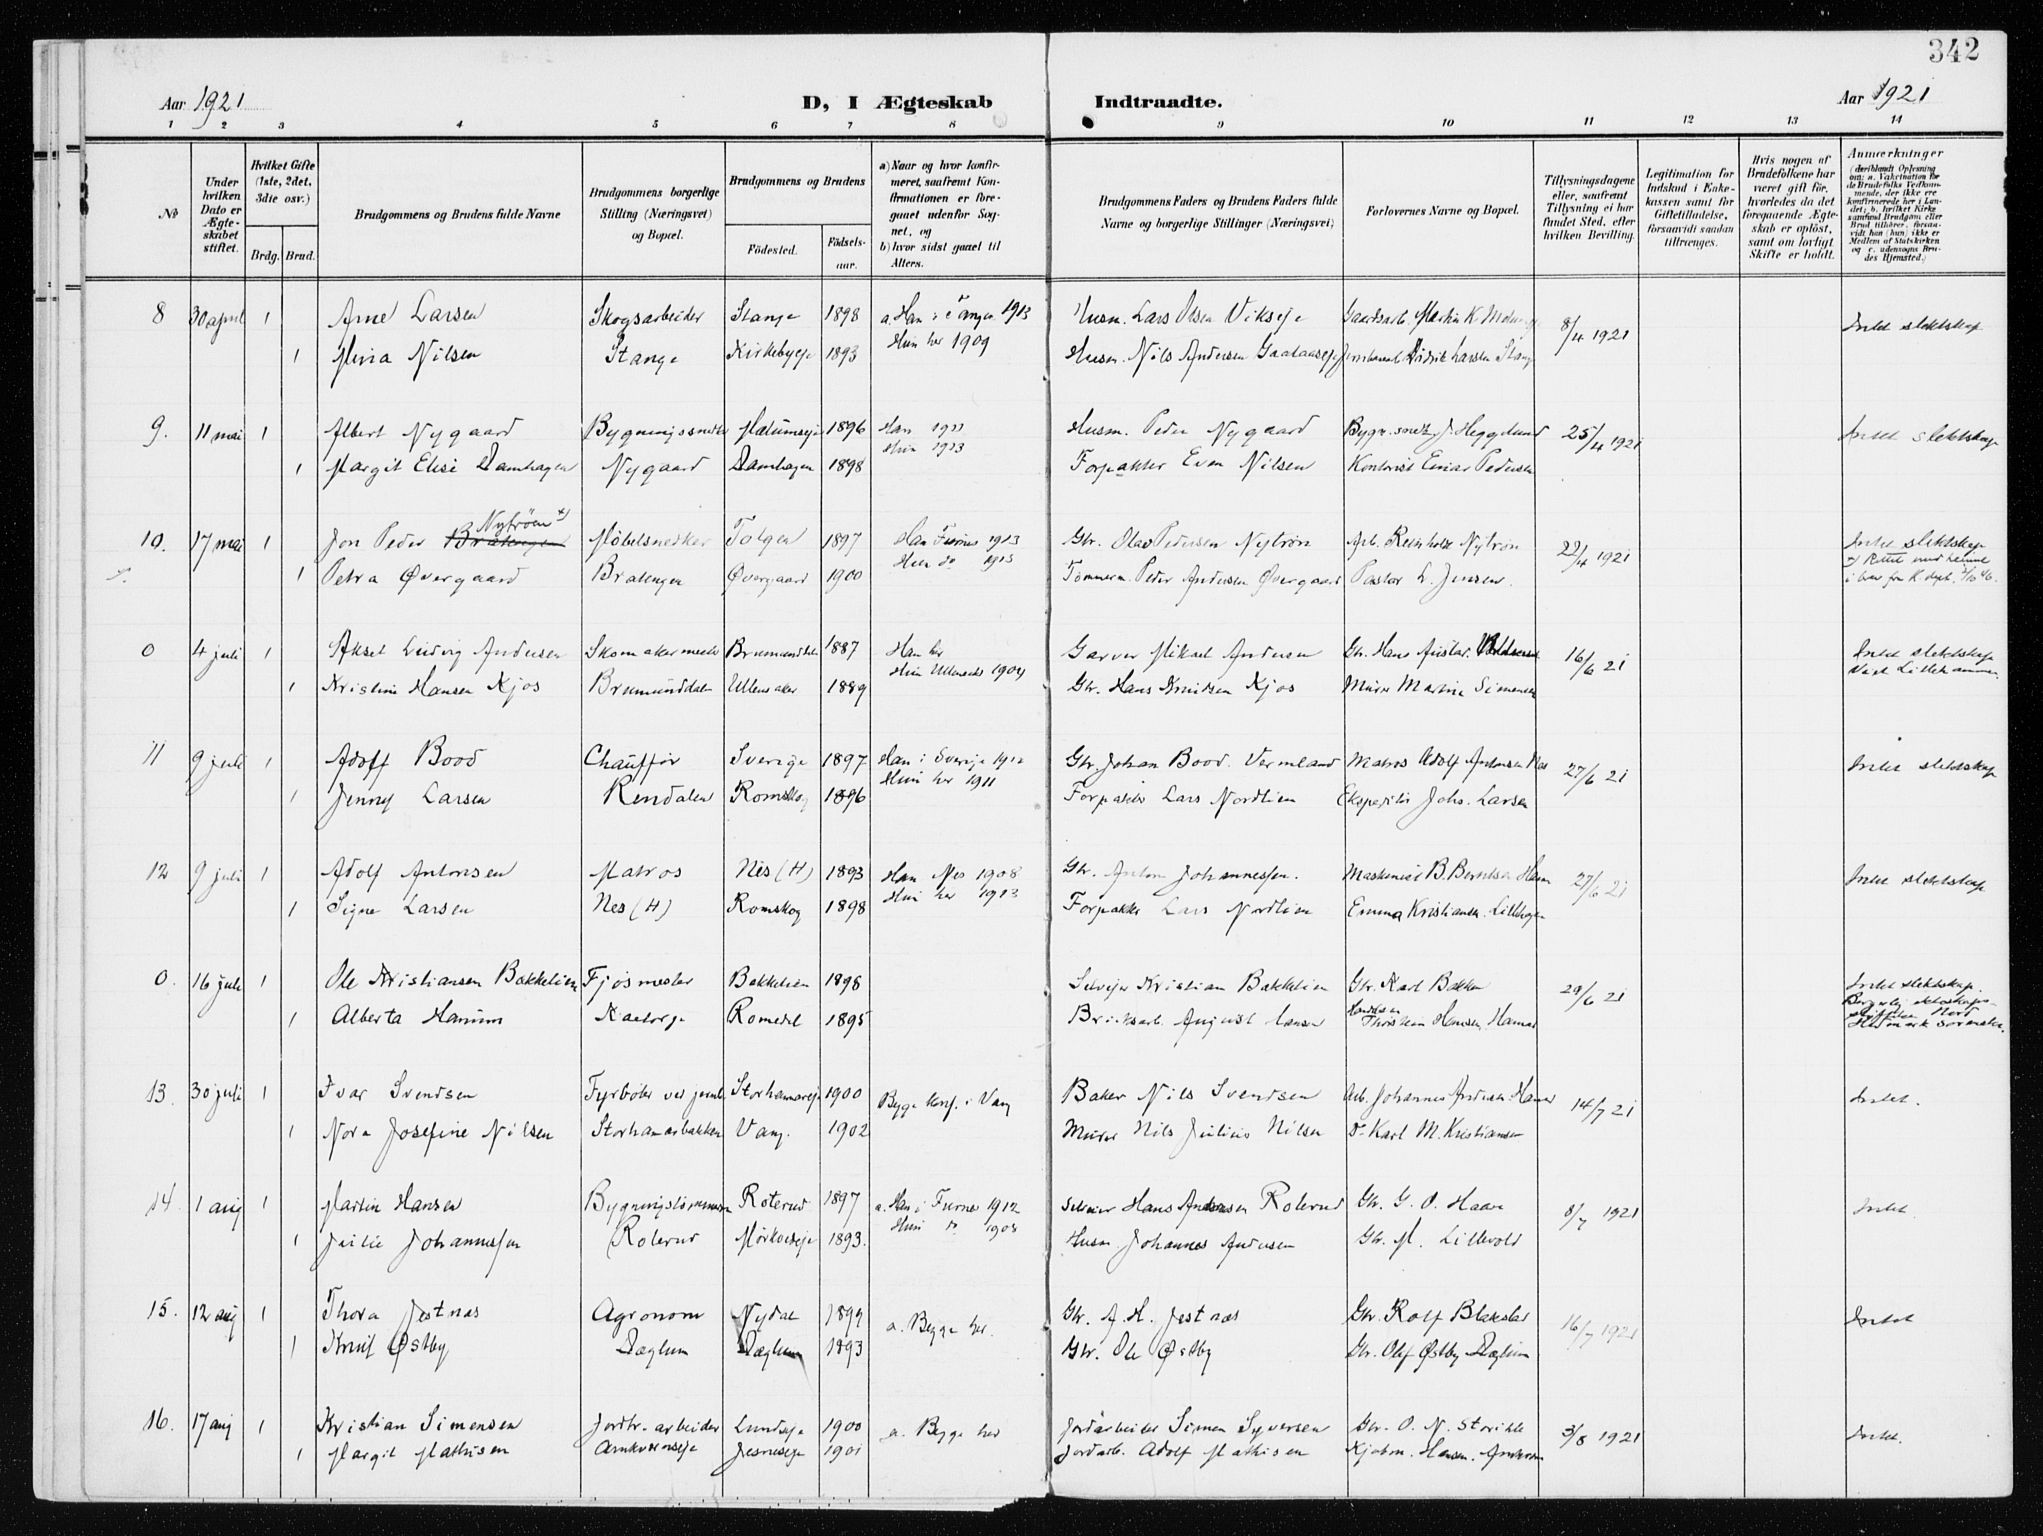 342
Aar 1921 D, I Ægteskab Indtraadte. Aar 1921
1 2 3 4 5 6 7 8 9 10 11 12 13 14
No
Under hvilken Dato er Ægteskabet stiftet.
Hvilket Gifte (1ste, 2det, 3die osv.)
Brdg. Brud.
Brudgommens og Brudens fulde Navne
Brudgommens borgerlige Stilling (Næringsvei) og Bopæl.
Brudgommens og Brudens
Fødested. Fødselsaar.
a) Naar og hvor konfirmeret, saafremt Konfirmationen er foregaaet udenfor Sognet, og
b) hvor sidst gaaet til Alters.
Brudgommens Faders og Brudens Faders fulde Navne og borgerlige Stillinger (Næringsvei)
Forlovernes Navne og Bopæl.
Tillysningsdagene eller, saafremt Tillysning ei har fundet Sted, efter hvilken Bevilling.
Legitimation for Indskud i Enkekassen samt for Giftetilladelse, forsaavidt saadan tiltrænges.
Hvis nogen af Brudefolkene har været gift før, hvorledes da det foregaaende Ægteskab er opløst, samt om lovligt Skifte er holdt.
Anmærkninger
(deriblandt Oplysning om: a. Vakcination for de Brudefolks Vedkommende, der ikke ere konfirmerede her i Landet; b. hvilket Kirkesamfund Brudgom eller Brud tilhører, forsaavidt han (hun) ikke er Medlem af Statskirken og c. udensogns Brudes Hjemsted.)
8 30 april 1 Arne Larsen Skogsarbeider Stange 1898 a. Han i Tangen 1913 Husm. Lars Olsen Vikseje Gaardsarb. Martin K. 8/4 1921 Intet slektskap
1 Mina Nilsen Stange Kirkebyeje 1893 Hun her 1909 Husm. Nils Andersen Gaalaaseje Larsen Stange
9. 11 mai 1 Albert Nygaard Bygningssnedker Mælumseje 1896 Han 1911 Husm. Peder Nygaard Bygn. snedk. J. Heggelund 25/4 1921 Intet slektskap
1 Margit Elise Damhagen Nygaard Damhagen 1898 Hun 1913 Forpakter Even Nilsen Kontorist Einar Pedersen
10. 17 mai 1 Jon Peder Bratengen Nytrøen x) Møbelsnedker Tolgen 1897 Han Furnes 1913 Gbr. Olav Pedersen Nytrøn Arb. Reinholdt Nytrøn 22/4 1921 Intet slektskap
1 Petra Øvergaard Bratengen Øvergaard 1900 Hun do 1915 Tømmerm. Peder Andersen Øvergaard Pastor L. Jensen x) Rettet med hjemmel i brev fra K. dept.
0 4 juli 1 Aksel Ludvig Andersen Skomakermester Brumunddalen 1887 Han her Garver Mikael Andersen Gbr. Hans Gustav 16/6 21 Intet slektskap
1 Kristine Hansen Kjos Brumunddalen Ullensaker 1889 Hun Ullensaker 1904 Gbr. Hans Knudsen Kjos Murer Martin Simensen Viet Lillehammer.
11 9 juli 1 Adolf Bood Chauffør Sverige 1897 Han i Sverige 1912 Gbr. Johan Bood. Vermland Matros Adolf Antonsen Nes 27/6 21 Intet slektskap
1 Jenny Larsen Rendalen Romskog 1896 Hun her 1911 Forpakter Lars Nordlien Ekspeditør Johs. Larsen
12 9 juli 1 Adolf Antonsen Matros Nes (H) 1893 Han Nes 1908 Gbr. Anton Johannessen. Maskinist B. Berntsen Hamar 27/6 21 Intet slektskap
1 Signe Larsen Nes (H) Romskog 1898 Hun her 1913 Forpakter Lars Nordlien Emma Kristiansen. Lillehagen
0. 16 juli 1 Ole Kristiansen Bakkelien Fjøsmester Bakkelien 1898 Selveier Kristian Bakkelien Gbr. Karl Bakken 29/6 21 Intet slektskap.
1 Alberta Hanum Romedal 1895 Bruksarb. August Hansen Thorstein Hansen, Hamar Borgerlig ekteskap stiftet hos Nord Hedmark sorenskr.
13. 30 juli 1 Ivar Svendsen Fyrbøter ved jernb. Storhamareje 1900 Begge konf. i Vang Baker Nils Svendsen Arb. Johannes Andersen Hamar 14/7 21 Intet.
1 Nora Josefine Nilsen Storhamarbakken Vang. 1902 Murer Nils Julius Nilsen Do Karl M. Kristiansen
14. 1 aug 1 Martin Hansen Bygningstømmerm. Roterud 1897 a. Han i Furnes 1912 Selveier Hans Andersen Roterud Gbr. G. O. Haave 8/7 1921 Intet.
1 Julie Johannessen Roterud Mørkveseje 1893. Hun do 1908 Husm. Johannes Andersen Gbr. M. Lillevold
15. 12 aug 1 Thora Jestnæs Agronom Nydal 1899 a. Begge her. Gbr. A. H. Jestnæs Gbr. Rolf Blakstad 16/7 1921 Intet
1 Knut Østby Dæglum Dæglum 1893 Gbr. Ole Østby Gbr. Olaf Østby Dæglum
16. 17 aug 1 Kristian Simensen Jordbr. arbeider Lundseje 1900 a. Begge her Jordarbeider Simen Syversen Gbr. O. N. Storihle 3/8 1921 Intet.
1 Margit Mathisen Arnkvernseje Jesneseje 1901 Jordarb. Adolf Mathisen Kjøbm. Hansen.